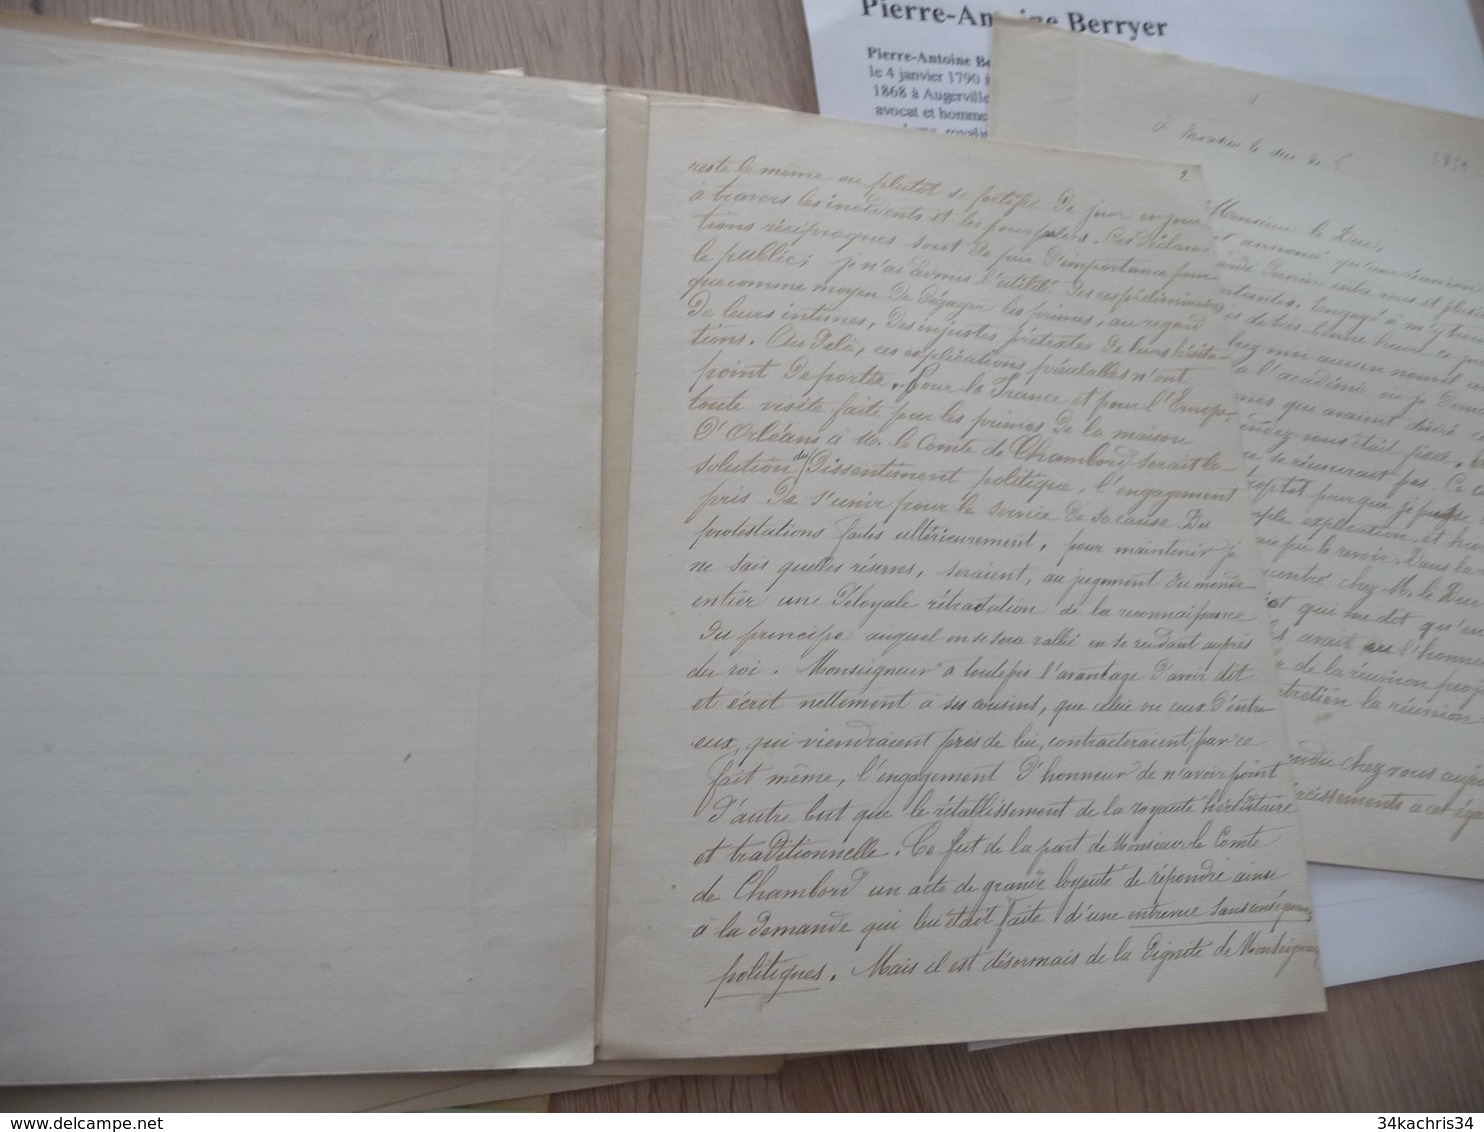 Pierre-Antoine Berryer
Pierre-Antoine Be
le 4 janvier 1790 à
1868 à Augerville
avocat et homme
royalis
à Monsieur le duc de
Monsieur le Duc,
annoncé qu'une réunion
dernier entre mes et plusi
engagé à m'y trou
de très bonne heure ce
chez moi aucun nouvel
à l'académie où je
mes qui avaient désiré
rendez vous était fixé.
ce se réunirait pas. Ce
tôt pour que je puisse
ple explication, et
pu le revoir. Dans la
contré chez M. le Duc
et qui me dit qu'en
avait eu l'honne
de la réunion proj
tretien la réunion
endu chez vous aujou
cissements a cet ég
2
reste la même ou plutôt se fortifie de jour en jour
à travers les incidents et les pourparlers. Ces déclara
tions réciproques sont de peu d'importance pour
le public; je n'ai admis l'utilité des ces préliminaires
que comme moyen de dégager les princes, au regard
de leurs intimes, des injustes prétextes de leurs hésita-
tions. Au delà, ces explications préalables n'ont
point de portée. Pour la France et pour l'Europe,
toute visite faite par les princes de la maison
d'Orléans à M. le Comte de Chambord serait la
solution du dissentiment politique, l'engagement
pris de s'unir pour le service de sa cause. Des
protestations faites ultérieurement, pour maintenir je
ne sais quelles réserves, seraient, au jugement du monde
entier une déloyale rétractation de la reconnaissance
du principe auquel on se sera rallié en se rendant auprès
du roi. Monseigneur a toutefois l'avantage d'avoir dit
et écrit nettement à ses cousins, que celui ou ceux d'entre
eux, qui viendraient près de lui, contracteraient, par ce
fait même, l'engagement d'honneur de n'avoir point
d'autre but que le rétablissement de la royauté héréditaire
et traditionnelle. Ce fut de la part de Monsieur le Comte
de Chambord un acte de grande loyauté de répondre ainsi
à la demande qui lui était faite d'une entrevue sans conséquences
politiques. Mais il est désormais de la dignité de Monseigneur
34kachris34